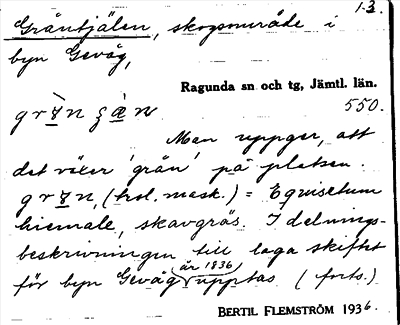 1-3.
Gråntjälen, skogsområde i
byn Gevåg,
Ragunda sn och tg, Jämtl. län.
550.
Man uppger, att
det växer 'grån' på platsen.
(kol. mask.) = Equisetum
hiemale, skavgräs. I delnings-
beskrivningen till laga skiftet
år 1836
för byn Gevåg upptas (forts.)
BERTIL FLEMSTRÖM 1936.